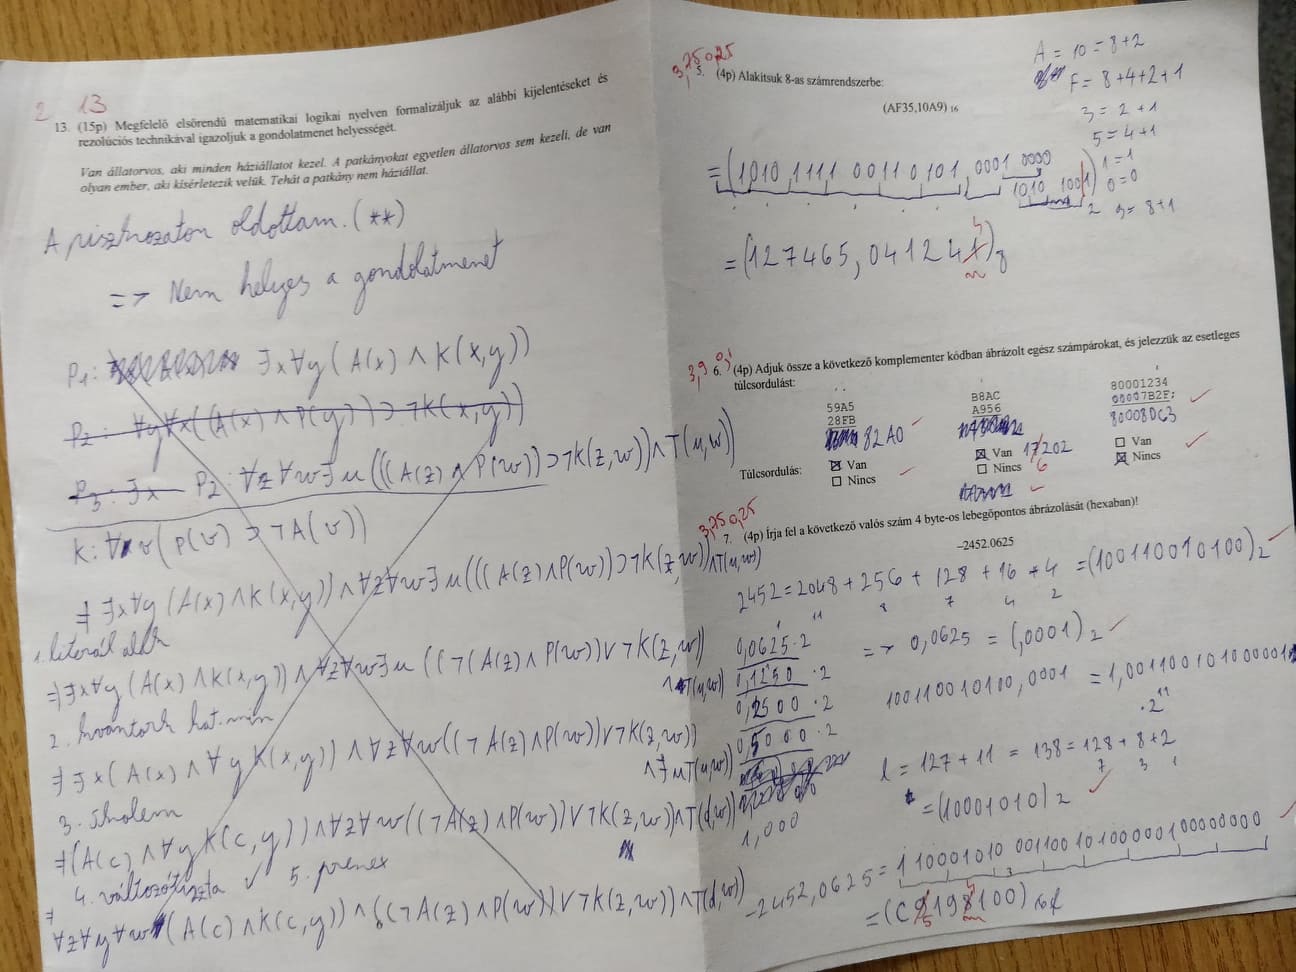 2 13
13. (15p) Megfelelő elsőrendű matematikai logikai nyelven formalizáljuk az alábbi kijelentéseket és
rezolúciós technikával igazoljuk a gondolatmenet helyességét.
Van állatorvos, aki minden háziállatot kezel. A patkányokat egyetlen állatorvos sem kezeli, de van
olyan ember, aki kísérletezik velük. Tehát a patkány nem háziállat.
A piszkozaton oldottam. (**)
=> Nem helyes a gondolatmenet
P1: ∃x∀y(A(x) ∧ K(x,y))
P2: ∀y∀x((A(x) ∧ P(y)) ⊃ ¬K(x,y))
P3: ∃x P2: ∀z∀w∃u(((A(z) ∧ P(w)) ⊃ ¬K(z,w)) ∧ T(u,w))
K: ∀v(P(v) ⊃ ¬A(v))
∃x∀y(A(x) ∧ K(x,y)) ∧ ∀z∀w∃u(((A(z) ∧ P(w)) ⊃ ¬K(z,w)) ∧ T(u,w))
1. literál alk
∃x∀y(A(x) ∧ K(x,y)) ∧ ∀z∀w∃u((¬(A(z) ∧ P(w)) ∨ ¬K(z,w))
∧ T(u,w))
2. kvantork hat. min
∃x(A(x) ∧ ∀yK(x,y)) ∧ ∀z∀w((¬A(z) ∧ P(w)) ∨ ¬K(z,w))
∧ ∃uT(u,w))
3. skolem
(A(c) ∧ ∀yK(c,y)) ∧ ∀z∀w((¬A(z) ∧ P(w)) ∨ ¬K(z,w)) ∧ T(d,w))
4. változótiszta ✓ 5. prenex
∀z∀y∀w(A(c) ∧ K(c,y)) ∧ ((¬A(z) ∧ P(w)) ∨ ¬K(z,w)) ∧ T(d,w))
3,75 0,25
5. (4p) Alakítsuk 8-as számrendszerbe:
(AF35,10A9) 16
A = 10 = 8+2
F = 8+4+2+1
3 = 2+1
5 = 4+1
1 = 1
0 = 0
9 = 8+1
= (1010 1111 0011 0101, 0001 0000
1010 1001)
2
= (127465, 041241)8
3,9 0,1
6. (4p) Adjuk össze a következő komplementer kódban ábrázolt egész számpárokat, és jelezzük az esetleges
túlcsordulást:
59A5
28FB
82A0
B8AC
A956
17202
6
80001234
00007B2F;
80008DC3
Túlcsordulás:
Van
Nincs
Van
Nincs
Van
Nincs
3,75 0,25
7. (4p) Írja fel a következő valós szám 4 byte-os lebegőpontos ábrázolását (hexaban)!
–2452.0625
2452 = 2048 + 256 + 128 + 16 + 4 = (100110010100)2
11 8 7 4 2
0,0625 · 2
0,1250 · 2
0,2500 · 2
0,5000 · 2
1,000
=> 0,0625 = (,0001)2
100110010100,0001 = 1,001100101000001
· 2^11
l = 127 + 11 = 138 = 128 + 8 + 2
7 3 1
= (10001010)2
-2452,0625 = 1 10001010 00110010100000100000000
= (C9198100)16
5